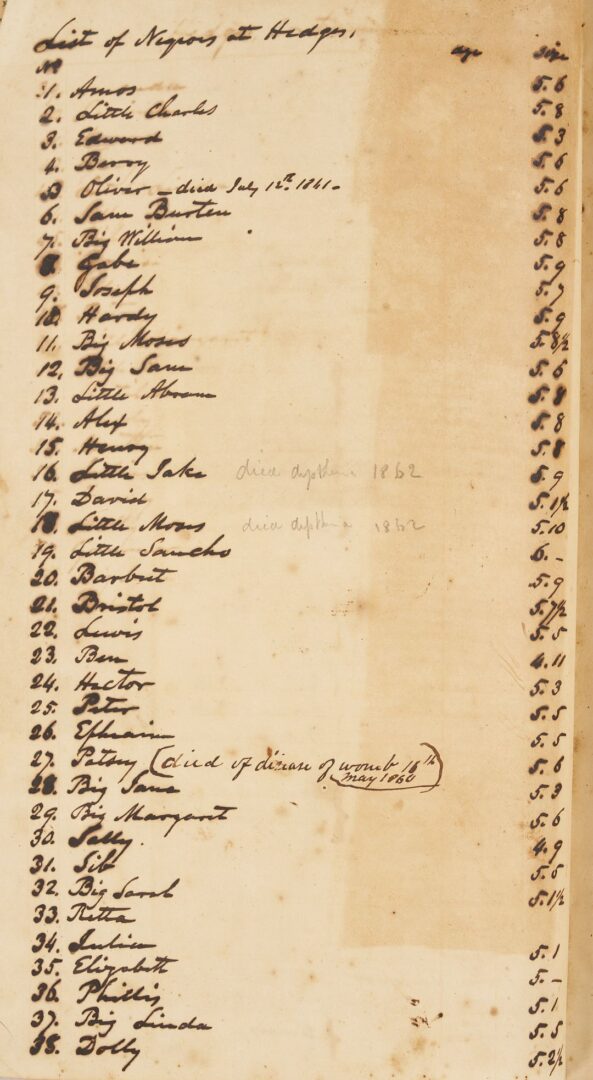 List of Negroes at Hedges,
No age size
1. Amos 5.6
2. Little Charles 5.8
3. Edward 5.3
4. Berry 5.6
5 Oliver - died July 12th. 1861 - 5.6
6. Sam Burten 5.8
7. Big William 5.8
8. Gabe 5.9
9. Joseph 5.7
10. Hardy 5.9
11. Big Moses 5.8 1/2
12. Big Sam 5.6
13. Little Abram 5.8
14. Alex 5.8
15. Henry 5.8
16. Little Jake died 1862 5.9
17. David 5.1 1/2
18. Little Moses died 1862 5.10
19. Little Sancho 6.-
20. 5.9
21. Bristol 5.7 1/2
22. Lewis 5.5
23. Ben 4.11
24. Hector 5.3
25. Peter 5.5
26. Ephraim 5.5
27. Patsey (died of disease of womb 16th 5.6
may 1860)
28. Big 5.3
29. Big Margaret 5.6
30. Sally. 4.9
31. Sib 5.5
32. Big Sarah 5.1 1/2
33. Retta
34. Julia 5.1
35. Elizabeth 5.-
36. Phillis 5.1
37. Big Linda 5.5
38. Dolly 5.2 1/2